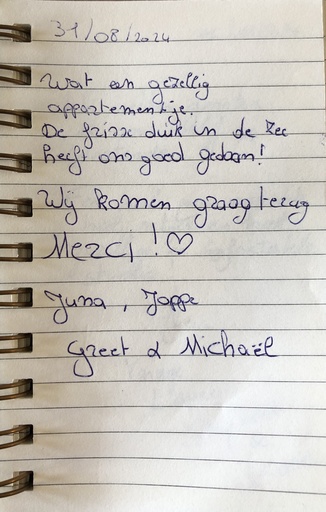 31/08/2024
Wat een gezellig
appartementje.
De frisse duik in de zee
heeft ons goed gedaan!
Wij komen graag terug
Merci! ♡
Juna, Jappe
Greet & Michaël